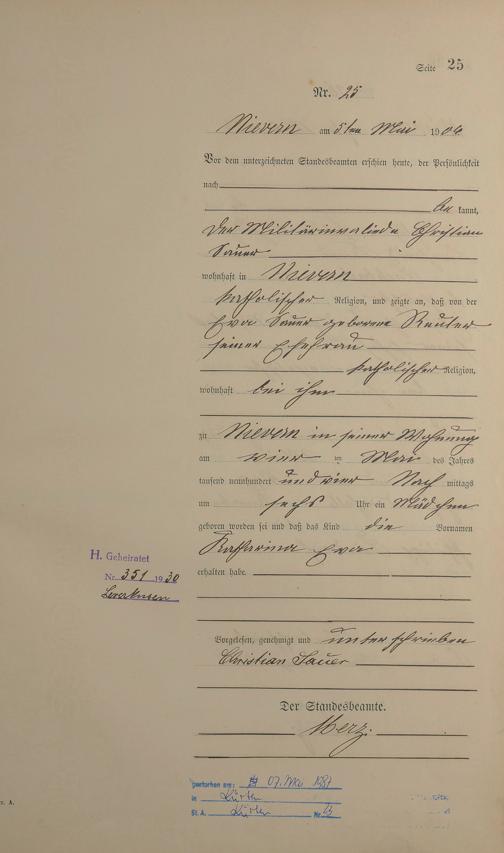 Seite 25
Nr. 25
Nievern am 5ten Mai 1904
Vor dem unterzeichneten Standesbeamten erschien heute, der Persönlichkeit
nach
be kannt,
der Militärinvalide Christian
Sauer
wohnhaft in Nievern
katholischer Religion, und zeigte an, daß von der
Eva Sauer geborene Reuter
seiner Ehefrau
katholischer Religion,
wohnhaft bei ihm
zu Nievern in seiner Wohnung
am vier ten Mai des Jahres
tausend neunhundert und vier Nach mittags
um sechs Uhr ein Mädchen
geboren worden sei und daß das Kind die Vornamen
Katharina Eva
erhalten habe.
H. Geheiratet
Nr. 351 1930
Leverkusen
Vorgelesen, genehmigt und unterschrieben
Christian Sauer
Der Standesbeamte.
Merz.
gestorben am: 07. Mai 1987
in Kürten
St. A. Kürten Nr.